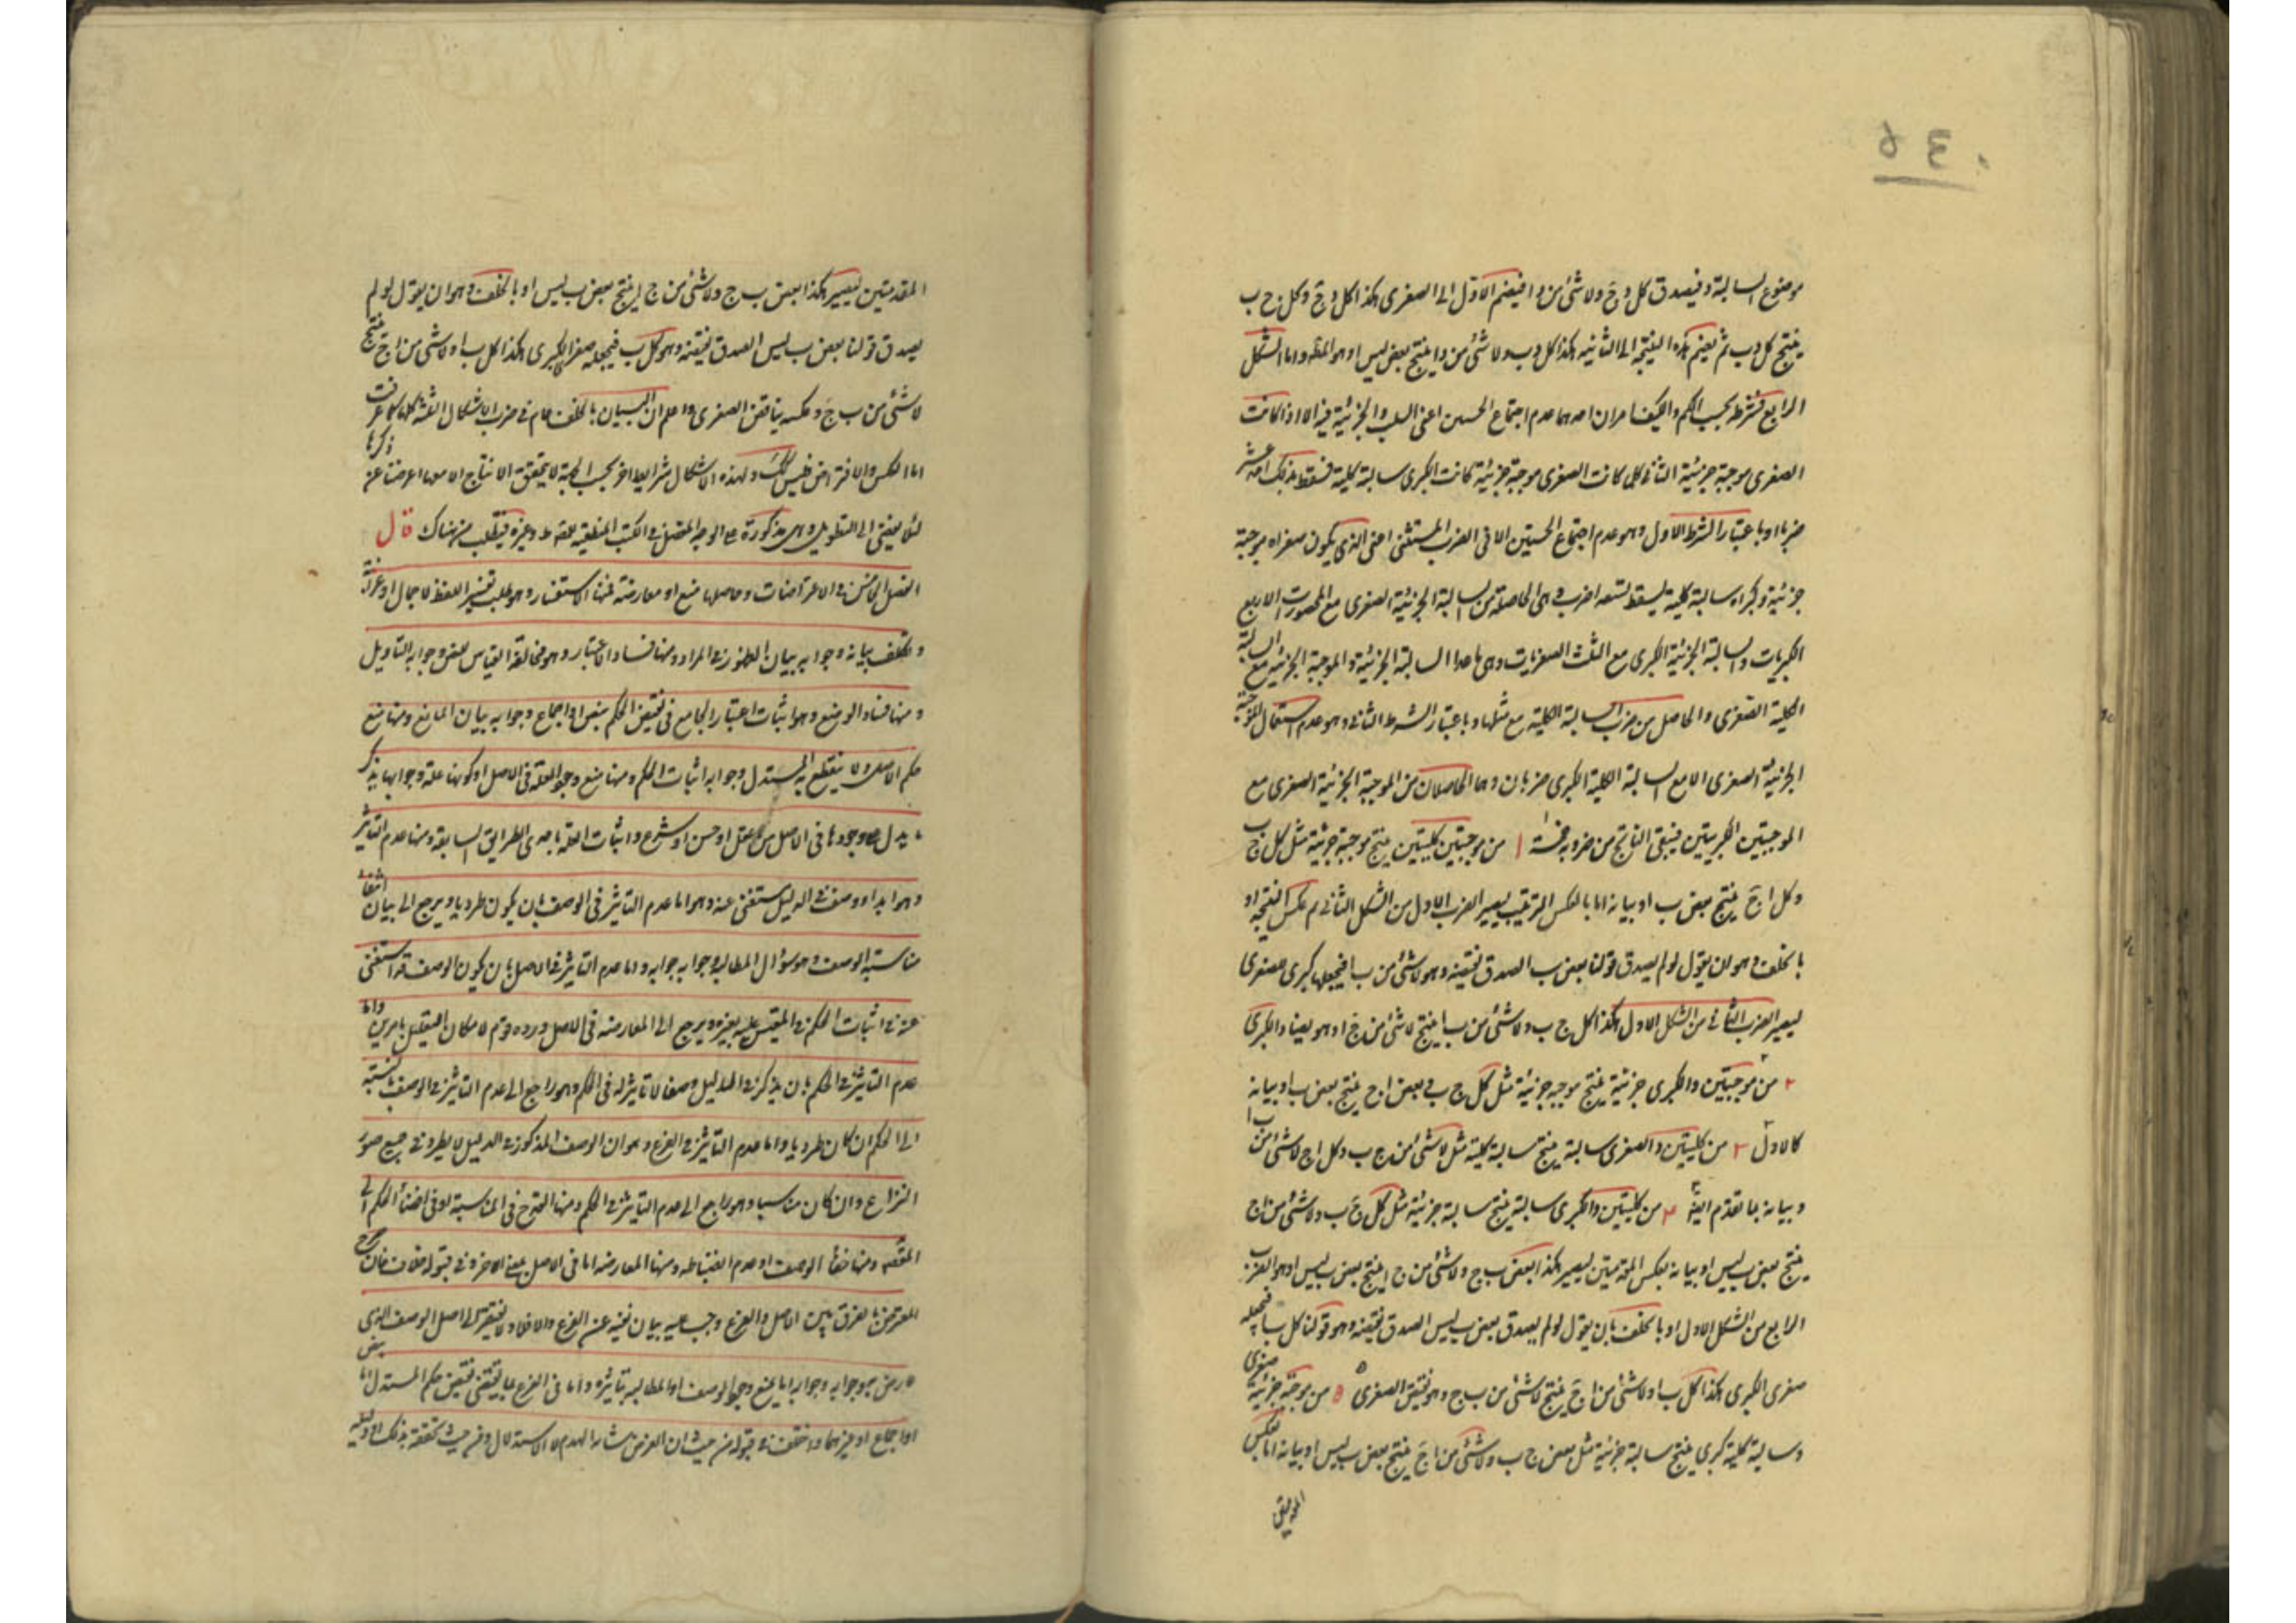 ٥٣٠
موضوع السالبة د فيصدق كل د ج ولا شئ من د ا فيضم الاول الى الصغرى هكذا كل د ج وكل ج ب
ينتج كل د ب ثم يضم هذه النتيجة الى الثانية هكذا كل د ب ولا شئ من د ا ينتج بعض ب ليس ا وهو المط واما الشكل
الرابع فشرطه بحسب الكم والكيف امران احدهما عدم اجتماع الخستين اعنى السلب والجزئية فيه الا اذا كانت
الصغرى موجبة جزئية الثانى كلما كانت الصغرى موجبة جزئية كانت الكبرى سالبة كلية فسقط بذلك احد عشر
ضربا او باعتبار الشرط الاول وهو عدم اجتماع الخستين الا فى الضرب المستثنى اعنى الذى يكون صغراه موجبة
جزئية وكبراه سالبة كلية يسقط تسعة اضرب وهى الحاصلة من السالبة الجزئية الصغرى مع المحصورات الاربع
الكبريات والسالبة الجزئية الكبرى مع الثلث الصغريات وهى ما عدا السالبة الجزئية والموجبة الجزئية مع السالبة
الكلية الصغرى والحاصل من ضرب السالبة الكلية مع مثلها وباعتبار الشرط الثانى وهو عدم استعمال الموجبة
الجزئية الصغرى الا مع السالبة الكلية الكبرى ضربان وهما الحاصلان من الموجبة الجزئية الصغرى مع
الموجبتين الكبريتين فيبقى الناتج من ضروبه خمسة ١ من موجبتين كليتين ينتج موجبة جزئية مثل كل ج ب
وكل ا ج ينتج بعض ب ا وبيانه اما بالعكس الترتيب ليصير الضرب الاول من الشكل الثانى ثم عكس النتيجة او
بالخلف وهو ان يقول لو لم يصدق قولنا بعض ب ا لصدق نقيضه وهو لا شئ من ب ا فيجعلها كبرى لصغرى
ليصير الضرب الثانى من الشكل الاول هكذا كل ج ب ولا شئ من ب ا ينتج لا شئ من ج ا وهو يضاد الكبرى
٢ من موجبتين والكبرى جزئية ينتج موجبة جزئية مثل كل ج ب وبعض ا ج ينتج بعض ب ا وبيانه
كالاول ٣ من كليتين والصغرى سالبة ينتج سالبة كلية مثل لا شئ من ج ب وكل ا ج لا شئ من ب ا
وبيانه بما تقدم ايضا ٤ من كليتين والكبرى سالبة ينتج سالبة جزئية مثل كل ج ب ولا شئ من ا ج
ينتج بعض ب ليس ا وبيانه بعكس المقدمتين ليصير هكذا بعض ب ج ولا شئ من ج ا ينتج بعض ب ليس ا وهو الضرب
الرابع من الشكل الاول او بالخلف بان يقول لو لم يصدق بعض ب ليس ا لصدق نقيضه وهو قولنا كل ب ا فيجعله
صغرى الكبرى هكذا كل ب ا ولا شئ من ا ج ينتج لا شئ من ب ج وهو نقيض الصغرى ٥ من موجبة جزئية صغرى
وسالبة كلية كبرى ينتج سالبة جزئية مثل بعض ج ب ولا شئ من ا ج ينتج بعض ب ليس ا وبيانه اما بعكس
المقدمتين ليصير هكذا بعض ب ج ولا شئ من ج ا ينتج بعض ب ليس ا او بالخلف وهو ان يقول لو لم
يصدق قولنا بعض ب ليس ا لصدق نقيضه وهو كل ب ا فيجعله صغرا لكبرى هكذا كل ب ا ولا شئ من ا ج ينتج
لا شئ من ب ج وعكسه يناقض الصغرى واعلم ان البيان بالخلف عام فى ضرب الاشكال الثلثة كلها كما عرفت
اما العكس والافتراض فليس كذلك ولهذه الاشكال شرايط اخر بحسب الجهة لا يتحقق الانتاج الا معها اعرضنا عن ذكرها
لئلا يفضى الى التطويل وهى مذكورة على الوجه المفصل فى الكتب المنطقية للمص وغيره فيطلب من هناك قال
الفصل الخامس فى الاعتراضات وحاصلها منع او معارضة فمنها الاستفسار وهو طلب تفسير اللفظ لاجمال او غرابة
وتكلف بيانه وجوابه ببيان الظهور فى المراد ومنها فساد الاعتبار وهو مخالفة القياس للنص وجوابه التاويل
ومنها فساد الوضع وهو اثبات اعتبار الجامع فى نقيض الحكم بنص او اجماع وجوابه ببيان المانع ومنها منع
حكم الاصل ولا ينقطع به المستدل وجوابه اثبات الحكم ومنها منع وجود العلة فى الاصل او كونها علة وجوابها بذكر
ما يدل على وجودها فى الاصل من عقل او حس او شرع واثبات العلة باحدى الطرايق السابقة ومنها عدم التاثير
وهو ابداء وصف فى الدليل مستغنى عنه وهو اما عدم التاثير فى الوصف بان يكون طرديا ويرجع الى بيان انتفاء
مناسبة الوصف وهو سؤال المطالبة وجوابه جوابه واما عدم التاثير فى الاصل بان يكون الوصف قد استغنى
عنه فى اثبات الحكم فى المقيس عليه بغيره ويرجع الى المعارضة فى الاصل ورده قوم لامكان التعليل بامرين واما
عدم التاثير فى الحكم بان يذكر فى الدليل وصفا لا تاثير له فى الحكم وهو راجع الى عدم التاثير فى الوصف بالنسبة
الى الحكم ان كان طرديا واما عدم التاثير فى الفرع وهو ان الوصف المذكور فى الدليل لا يطرد فى جميع صور
النزاع وان كان مناسبا وهو راجع الى عدم التاثير فى الحكم ومنها القدح فى المناسبة او فى افضاء الحكم الى
المقصد ومنها خفاء الوصف او عدم انضباطه ومنها المعارضة اما فى الاصل بمعنى الاخر وفى قبوله خلاف فان صرح
المعترض بالفرق بين الاصل والفرع وجب عليه بيان نفيه عن الفرع والا فلا ولا يفتقر الى اصل الوصف الذى
عارض به وجوابه اما بمنع وجود الوصف او المطالبة بتاثيره واما فى الفرع بما يقتضى نقيض حكم المستدل اما بنص
او اجماع او غيرهما واختلف فى قبوله من حيث ان الغرض الهدم لا الاستدلال ومن حيث تحققه بذلك